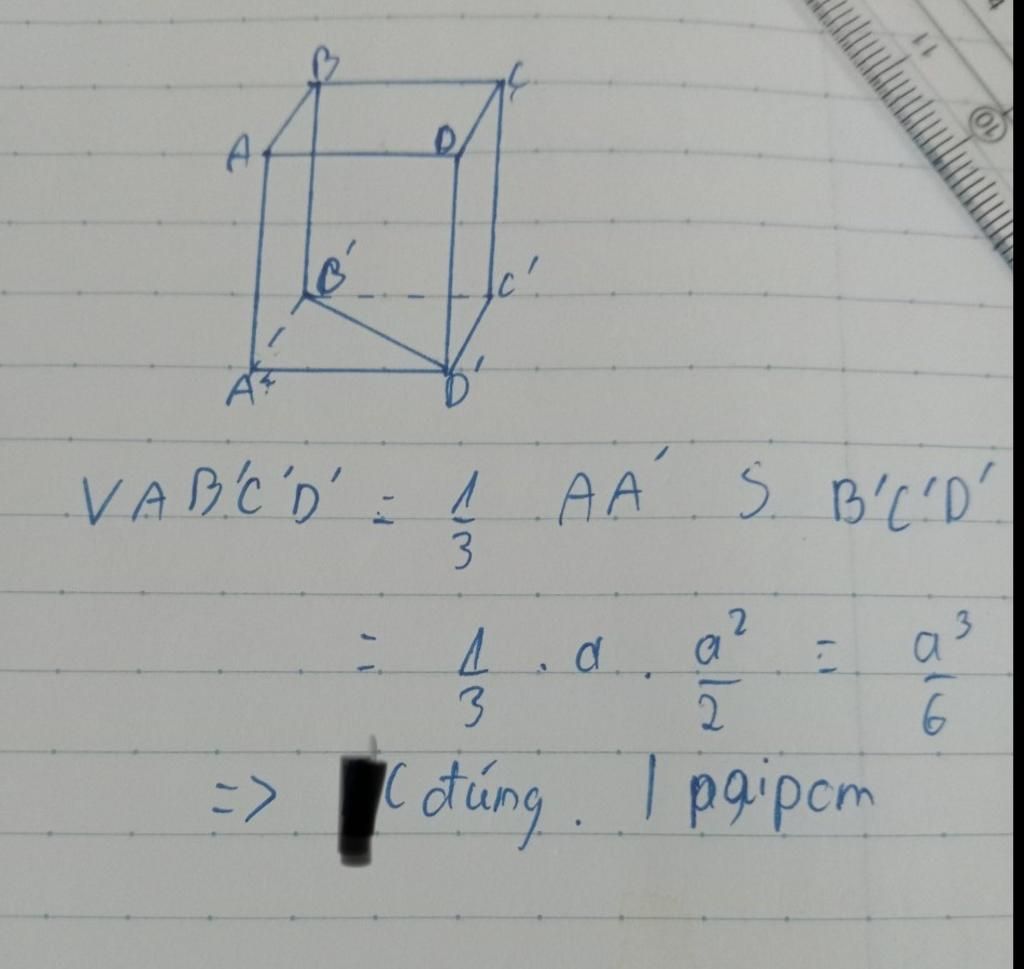 B C
A D
B' C'
A' D'
VAB'C'D' = 1/3 AA' S B'C'D'
= 1/3 . a . a²/2 = a³/6
=> C đúng.
11
10